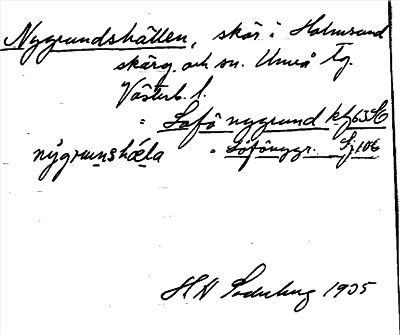 Nygrundshällen, skär i Holmsund
skärg. och sn. Umeå tg.
Västerb. l.
= Lofö nygrund kf 63 SO
nýgrun̲shǽla = Löfönygr. Sj 106
H N Soderberg 1935